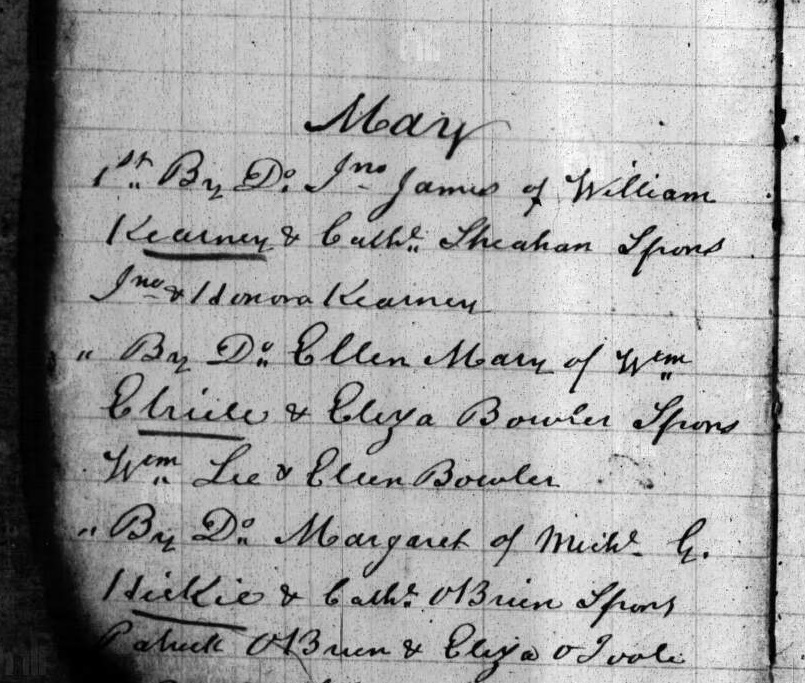 May
1st By Do. Jno James of William
Kearney & Cathe. Sheahan Spons
Jno & Honora Kearney
" By Do. Ellen Mary of Wm
& Eliza Bowler Spons
Wm Lee & Ellen Bowler
" By Do. Margaret of Michl. G.
Hickie & Cathe. O'Brien Spons
Patrick O'Brien & Eliza O'Toole